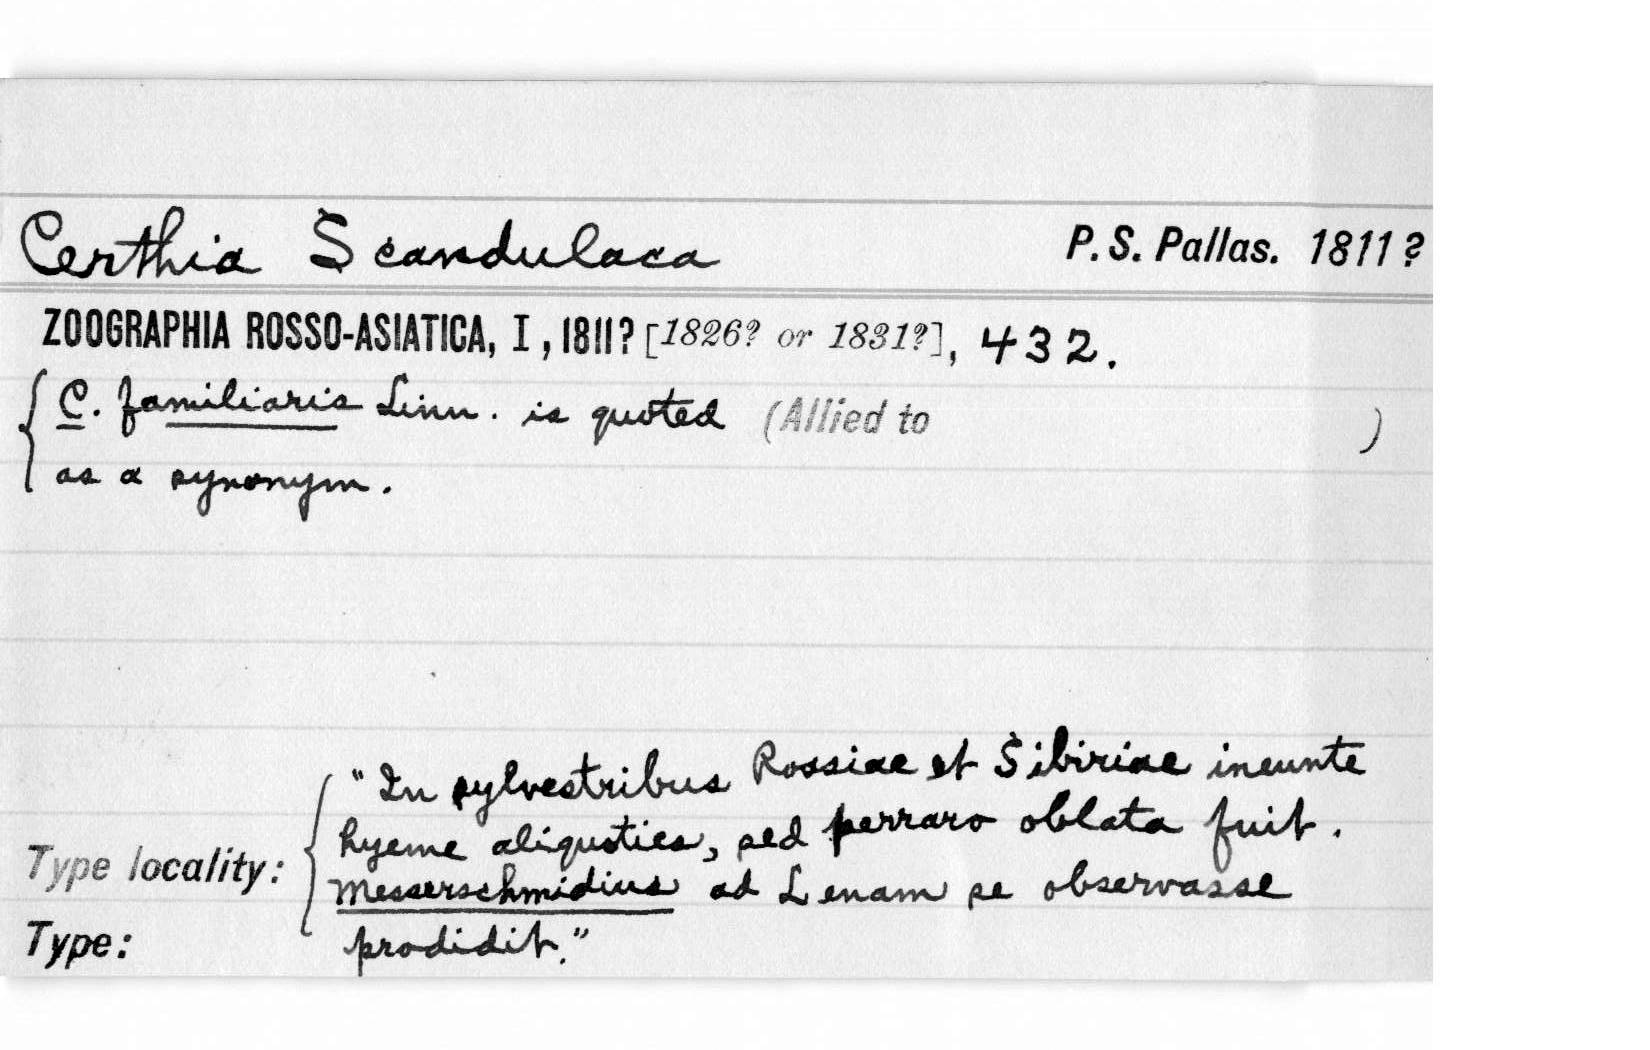 Certhia Scandulaca P. S. Pallas. 1811?
ZOOGRAPHIA ROSSO-ASIATICA, I, 1811? [1826? or 1831?], 432.
C. familiaris Linn. is quoted (Allied to )
as a synonym.
"In sylvestribus Rossiae et Sibiriae ineunte
hyeme aliquoties, sed perraro oblata fuit.
Type locality: Messerschmidius ad Lenam se observasse
Type: prodidit."